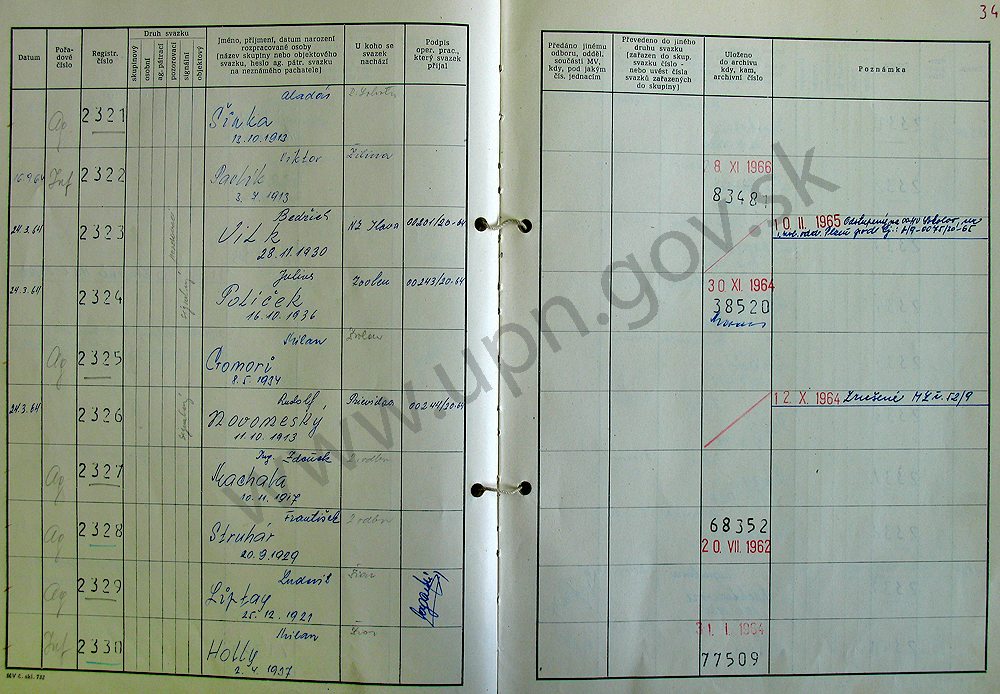 34
Datum
Pořadové číslo
Registr. číslo
Druh svazku
skupinový
osobní
ag. pátrací
pozorovací
signální
objektový
Jméno, příjmení, datum narození
rozpracované osoby
(název skupiny nebo objektového
svazku, heslo ag. pátr. svazku
na neznámého pachatele)
U koho se
svazek
nachází
Podpis
oper. prac.,
který svazek
přijal
Předáno jinému
odboru, odděl.
součásti MV,
kdy, pod jakým
čís. jednacím
Převedeno do jiného
druhu svazku
(zařazen do skup.
svazku číslo -
nebo uvést čísla
svazků zařazených
do skupiny)
Uloženo
do archivu
kdy, kam,
archivní číslo
Poznámka
Ag 2321 Aladár
Šinka
13.10.1913
16.9.64 Inf 2322 Viktor Žilina
Pavlík
3. 7. 1913
8 XI 1966
24.3.64 2323 Bedřich NZ Ilava 00201/20-64
Vlk
28.11.1930
10. II. 1965
24.3.64 2324 signálny Julius Zvolen 00243/20-64
Políček
16.10.1936
30 XI. 1964
38520
Ag 2325 Milan Zvolen
Gomori
8.5.1934
24.3.64 2326 signálny Rudolf Prievidza 00244/20-64
Novomeský
11.10.1913
12 X. 1964 Zrušené
Ag 2327 Ing. Zdeněk 2. odbor
Machala
10.11.1917
Ag 2328 František 2 odbor
Struhár
20.9.1929
68352
20. VII. 1962
Ag 2329 Ludovít
Liptay
25.12.1921
Inf 2330 Milan
Holly
2. 4. 1937
31. I. 1964
77509
MV č. skl. 732
www.upn.gov.sk